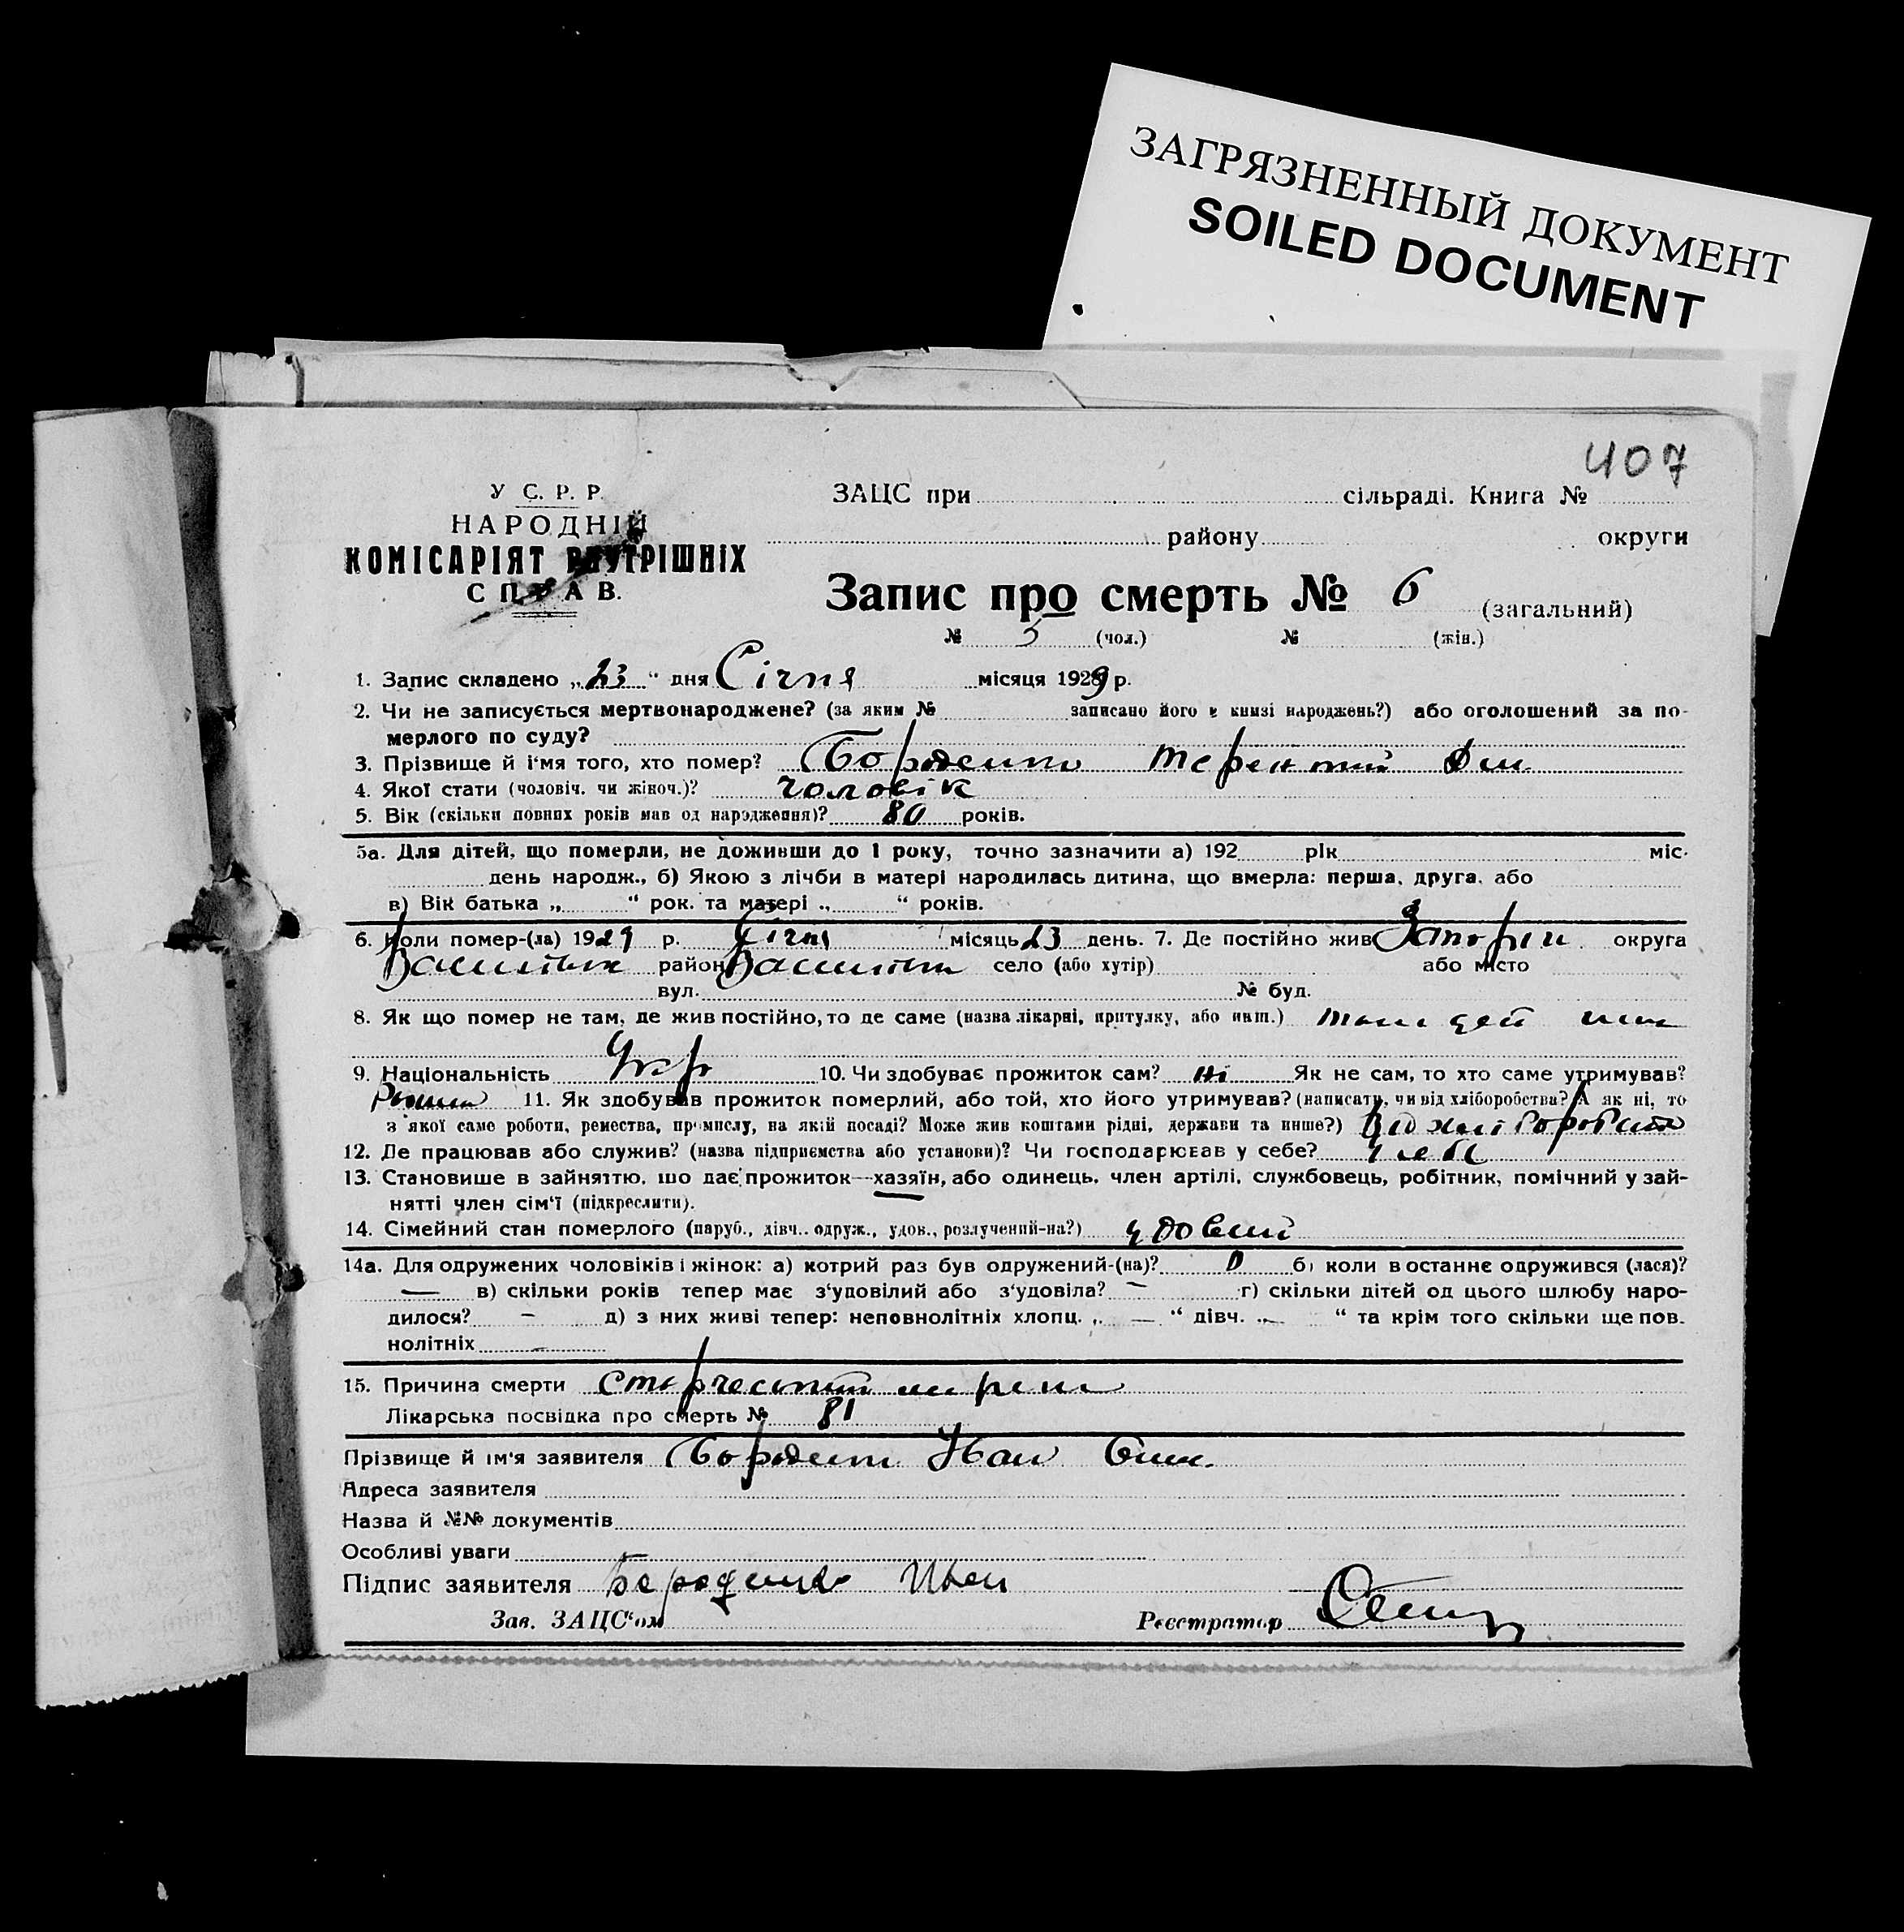 ЗАГРЯЗНЕННЫЙ ДОКУМЕНТ
SOILED DOCUMENT
407
У С. Р. Р.
НАРОДНІЙ
КОМІСАРІЯТ ВНУТРІШНІХ
СПРАВ.
ЗАЦС при сільраді. Книга №
району округи
Запис про смерть № 6 (загальний)
№ 5 (чол.) № (жін.)
1. Запис складено „23“ дня Січня місяця 1929 р.
2. Чи не записується мертвонароджене? (за яким № записано його в книзі народжень?) або оголошений за по-
мерлого по суду?
3. Прізвище й і'мя того, хто помер? Терентий
4. Якої стати (чоловіч. чи жіноч.)? чоловік
5. Вік (скільки повних років мав од народження)? 80 років.
5а. Для дітей, що померли, не доживши до 1 року, точно зазначити а) 192 рік міс.
день народж., б) Якою з лічби в матері народилась дитина, що вмерла: перша, друга, або
в) Вік батька „ “ рок. та матері „ “ років.
6. Коли помер-(ла) 1929 р. Січня місяць 23 день. 7. Де постійно жив округа
район село (або хутір) або місто
вул. № буд.
8. Як що помер не там, де жив постійно, то де саме (назва лікарні, притулку, або инш.)
9. Національність Укр 10. Чи здобуває прожиток сам? ні Як не сам, то хто саме утримував?
11. Як здобував прожиток померлий, або той, хто його утримував? (написати, чи від хліборобства? А як ні, то
з якої саме роботи, ремества, промислу, на якій посаді? Може жив коштами рідні, держави та инше?) Від
12. Де працював або служив? (назва підприємства або установи)? Чи господарював у себе? у себе
13. Становище в зайняттю, що дає прожиток—хазяїн, або одинець, член артілі, службовець, робітник, помічний у зай-
нятті член сім'ї (підкреслити).
14. Сімейний стан померлого (паруб., дівч., одруж., удов., розлучений-на?) удовий
14а. Для одружених чоловіків і жінок: а) котрий раз був одружений-(на)? 0 б) коли востаннє одружився (лася)?
— в) скільки років тепер має з'удовілий або з'удовіла? — г) скільки дітей од цього шлюбу наро-
дилося? — д) з них живі тепер: неповнолітніх хлопц. „ — “ дівч. „ — “ та крім того скільки ще пов.
нолітніх —
15. Причина смерти
Лікарська посвідка про смерть № 81
Прізвище й ім'я заявителя Иван
Адреса заявителя
Назва й №№ документів
Особливі уваги
Підпис заявителя Иван
Зав. ЗАЦС'ом Реєстратор